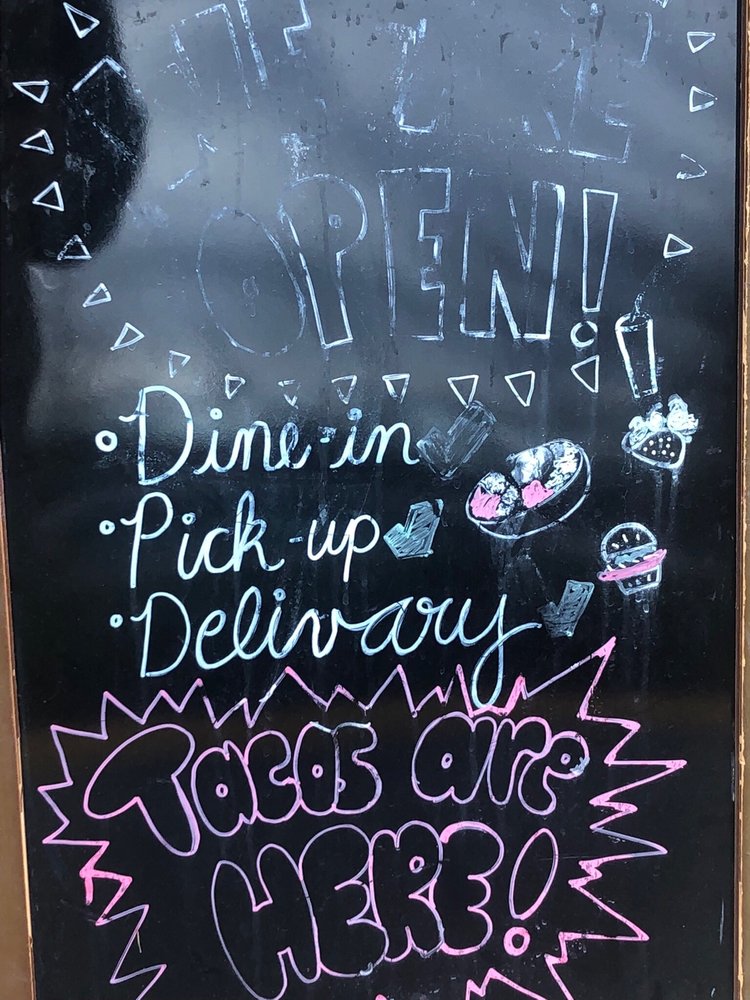 WE ARE
OPEN!
Dine-in
Pick-up
Delivary
Tacos are
HERE!